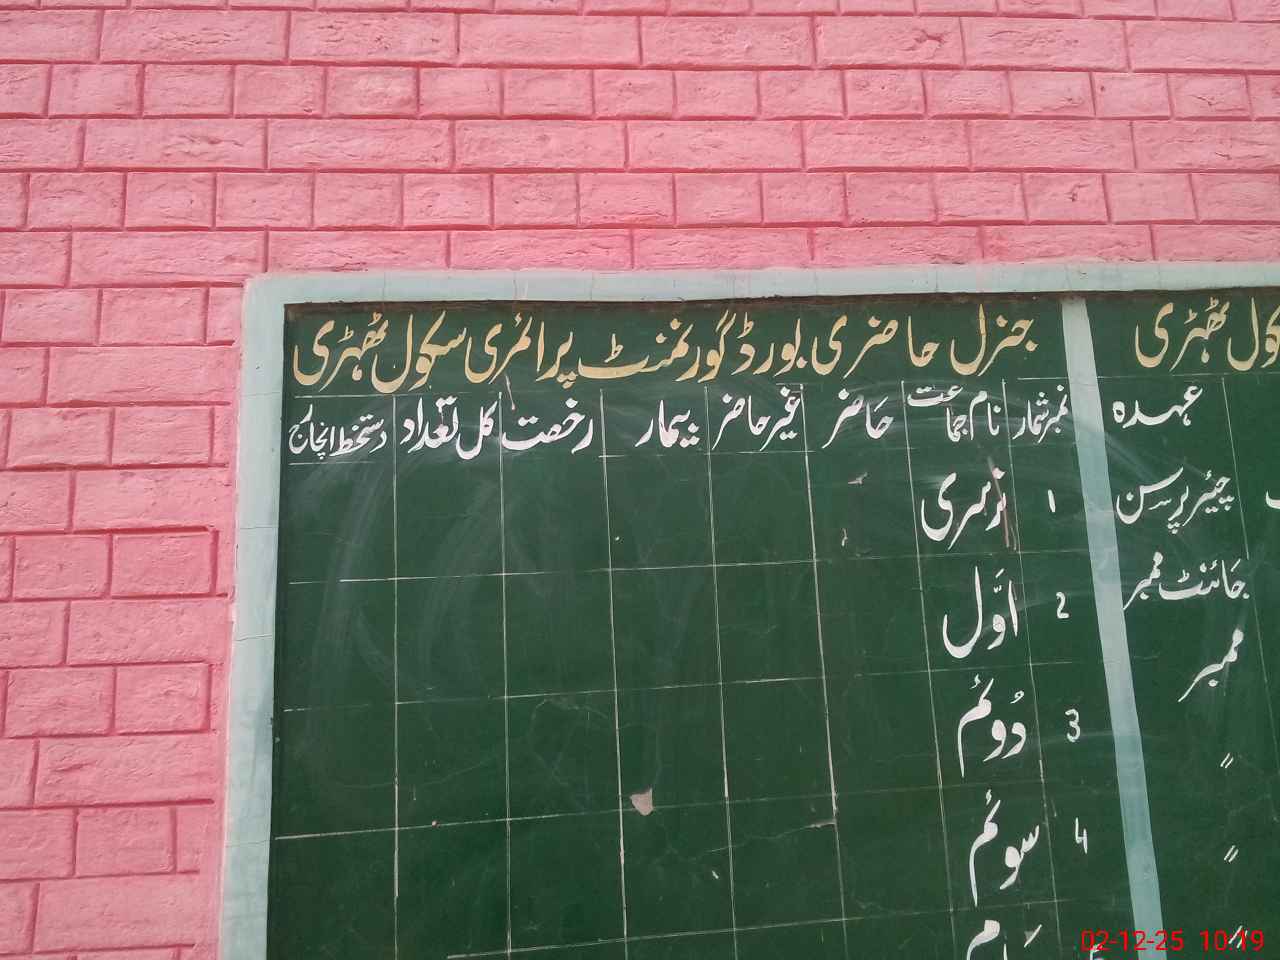 جنرل حاضری بورڈ گورنمنٹ پرائمری سکول ٹھہڑی
نمبر شمار نام جماعت حاضر غیر حاضر بیمار رخصت کل تعداد دستخط انچارج
1 نرسری
2 اوّل
3 دُوئم
4 سوئم
سکول ٹھہڑی
عہدہ
چیئر پرسن
جائنٹ ممبر
ممبر
〃
〃
〃
02-12-25 10:19